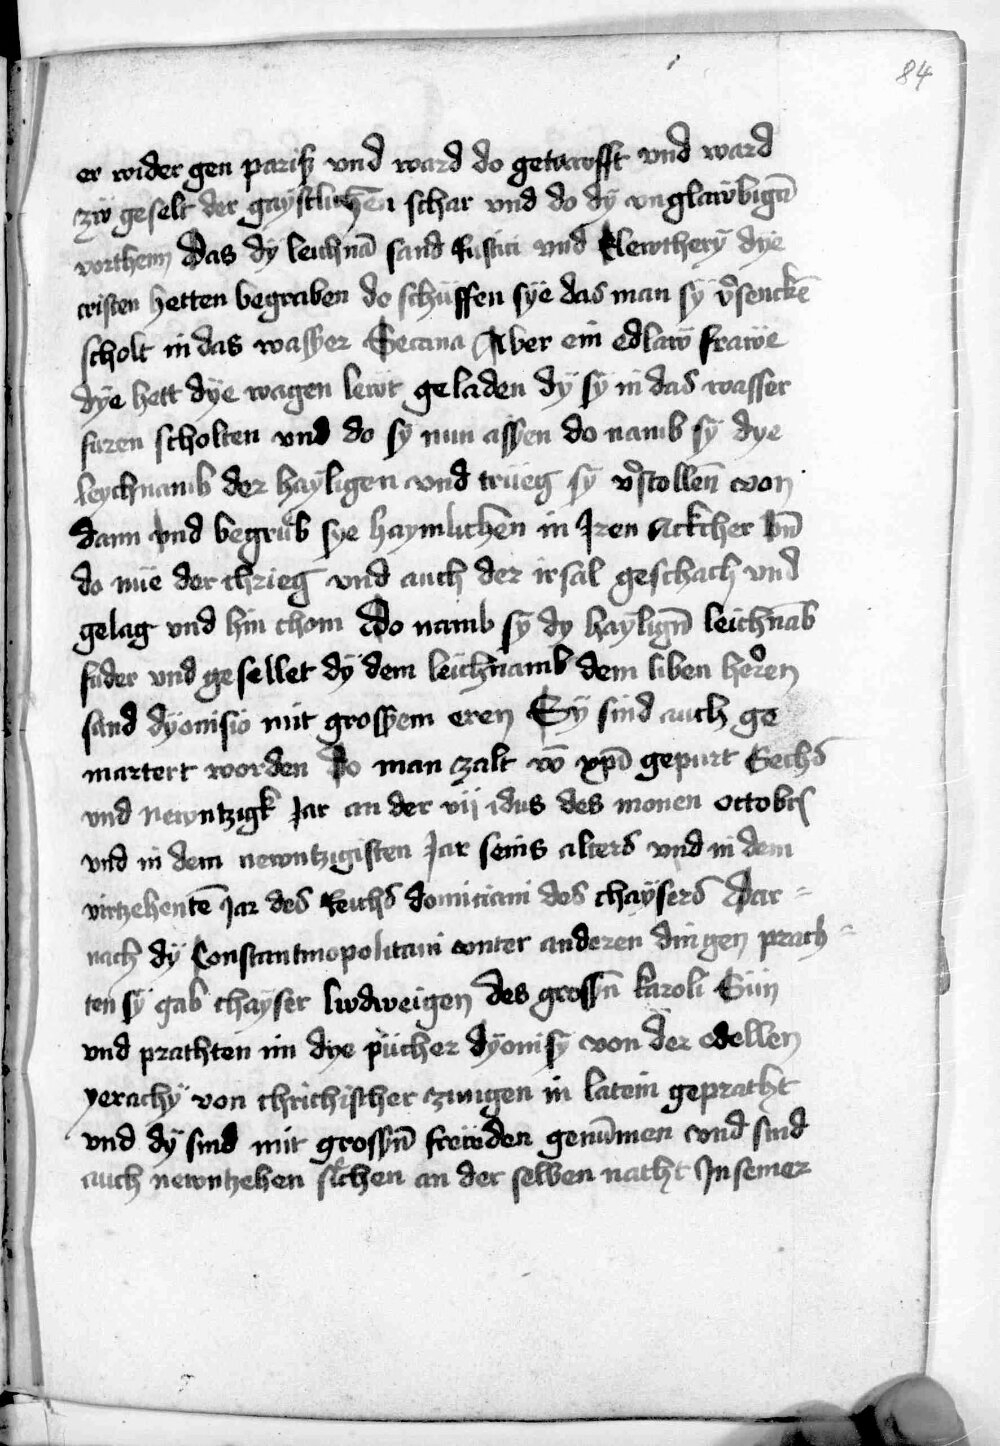 84
er wider gen pariß vnd ward do getawfft vnd ward
zw geselt der gaystlichen schar vnd do dÿ vnglawbigē
vorthenn Das dÿ leichnā sand Rustici vnd Elewtherÿ dÿe
cristen hetten begraben do schüffen sÿe das man sÿ v̾senckē
scholt in das wasser Secana Aber ein edlaw frawe
dÿe hett dÿe wagen lewt geladen dÿ sÿ in das wasser
furen scholten vnd do sÿ nun assen do namb sÿ dye
leychnamb der haÿligen vnd trüeg sÿ v̾stollen̄ von
dann vnd begrub sÿe haymlichen in Iren Ackcher vn̄
do nüe der chrieg vnd auch der irsal geschach vnd
gelag vnd hin chom Do namb sÿ dy haylign̄ leichnāb
fuder vnd gesellet dÿ dem leichnamb dem liben heren
sand dÿonisio mit grossem eren Sÿ sind auch ge
martert worden do man zalt vō xpī gepurt Sechs
vnd newntzigk Jar an der vij idus des monen Octobris
vnd in dem newntzigisten Jar seins alters vnd in dem
virtzehentē Jar des Reichs domiciani des chaÿsers Dar=
nach dÿ Constantinopolitani vnter anderen dingen prach=
ten sÿ gab chaÿser ludweigen des grossn̄ karoli Sün
vnd prachten im dye pücher dÿonisÿ von der edellen
yerachÿ von chrichischer zungen in latein gepracht
vnd dÿ sind mit grossn̄ frewden genūmen vnd sind
auch newntzehen sichen an der selben nacht In seiner